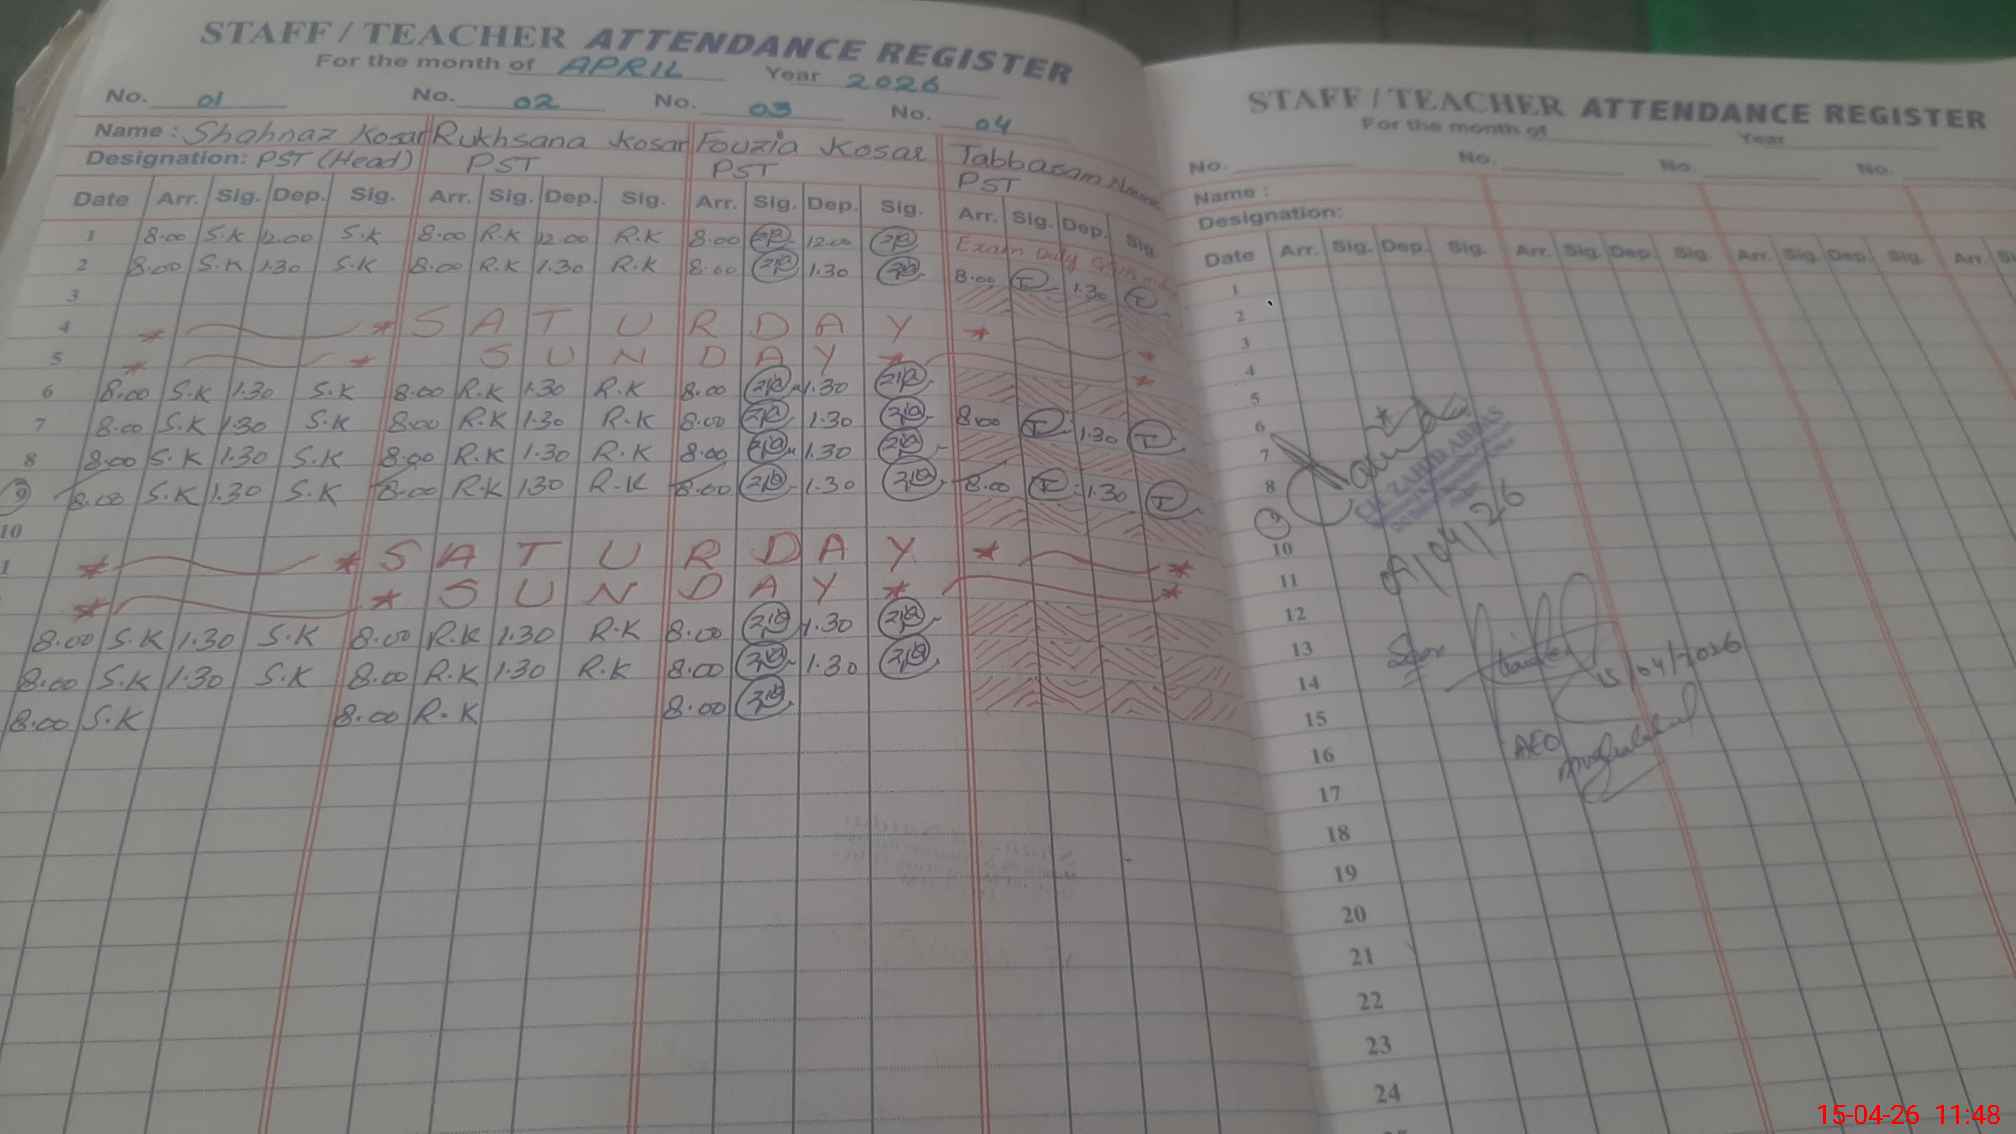 STAFF / TEACHER ATTENDANCE REGISTER
For the month of APRIL Year 2026
No. 01 No. 02 No. 03 No. 04
Name: Shahnaz Kosar Rukhsana Kosar Fouzia Kosar Tabbasam
Designation: PST (Head) PST PST PST
Date Arr. Sig. Dep. Sig. Arr. Sig. Dep. Sig. Arr. Sig. Dep. Sig. Arr. Sig. Dep. Sig.
1 8.00 S.K 12.00 S.K 8.00 R.K 12.00 R.K 8.00 12.00 Exam Duty
2 8.00 S.K 1.30 S.K 8.00 R.K 1.30 R.K 8.00 1.30 8.00 T 1.30 T
3
4 SATURDAY
5 SUNDAY
6 8.00 S.K 1.30 S.K 8.00 R.K 1.30 R.K 8.00 1.30
7 8.00 S.K 1.30 S.K 8.00 R.K 1.30 R.K 8.00 1.30 8.00 T 1.30 T
8 8.00 S.K 1.30 S.K 8.00 R.K 1.30 R.K 8.00 1.30
9 8.00 S.K 1.30 S.K 8.00 R.K 1.30 R.K 8.00 1.30 8.00 T 1.30 T
10
1 SATURDAY
SUNDAY
8.00 S.K 1.30 S.K 8.00 R.K 1.30 R.K 8.00 1.30
8.00 S.K 1.30 S.K 8.00 R.K 1.30 R.K 8.00 1.30
8.00 S.K 8.00 R.K 8.00
STAFF / TEACHER ATTENDANCE REGISTER
For the month of Year
No. No. No. No.
Name :
Designation:
Date Arr. Sig. Dep. Sig. Arr. Sig. Dep. Sig. Arr. Sig. Dep. Sig. Arr.
1
2
3
4
5
6
7
8
9
10
11
12
13
14
15
16
17
18
19
20
21
22
23
24
ZAHID ABBAS
9/04/26
15/04/2026
AEO
15-04-26 11:48